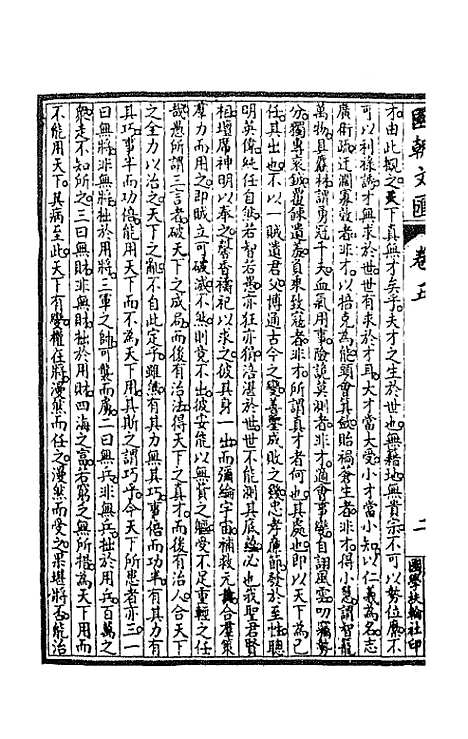 國朝文匯　卷五　二　國學扶輪社印
才由此觀之天下真無才矣乎夫才之生於世也無藉地無貲宗不可以勢位靡不
可以利祿誘才無求於世世有求於才耳大才當大受小才當小知以仁義為名志
廣術疏迂濶寡效者非才以掊克為能頭會箕斂貽禍蒼生者非才得小慧謂智寵
萬物具膂林謂勇冠千夫血氣用事險詭莫測者非才適會事變自詡風雲叨竊勢
分獨專衮鉞醬錬遺羞負乘致寇者非才所謂真才者何也其處也即以天下為己
任其出也不以一賊遺君父博通古今之變善鑒成敗之幾忠孝廉節發於至性聰
明英偉純任自然若智若愚亦狂亦狷浩湛於世世不能測其底蘊必也我聖君賢
相壇席神明以奉之馨香禱祀以求之彼其身一出而彌綸宇宙補救元氣合羣策
羣力而用之即賊立可破滅不然則竟不出彼安能以無貲之軀受不足重輕之任
哉愚所謂三言者破天下之成局而後有治法得天下之真才而後有治人合天下
之全力以治之天下之亂不自此定乎雖然有天下者無其巧事倍而功半有其力有
其巧事半而功倍能用天下而不為天下用其斯之謂巧乎今天下所患者亦三一
曰無將非無將拙於用將三軍之帥可襲而虜二曰無兵非無兵拙於用兵百萬之
衆走不知所之三曰無財非無財拙於用財四海之富窮之無所措為天下用而
不能用天下其病至此天下有變權任將漫然而任之漫然而受之果堪將否能治